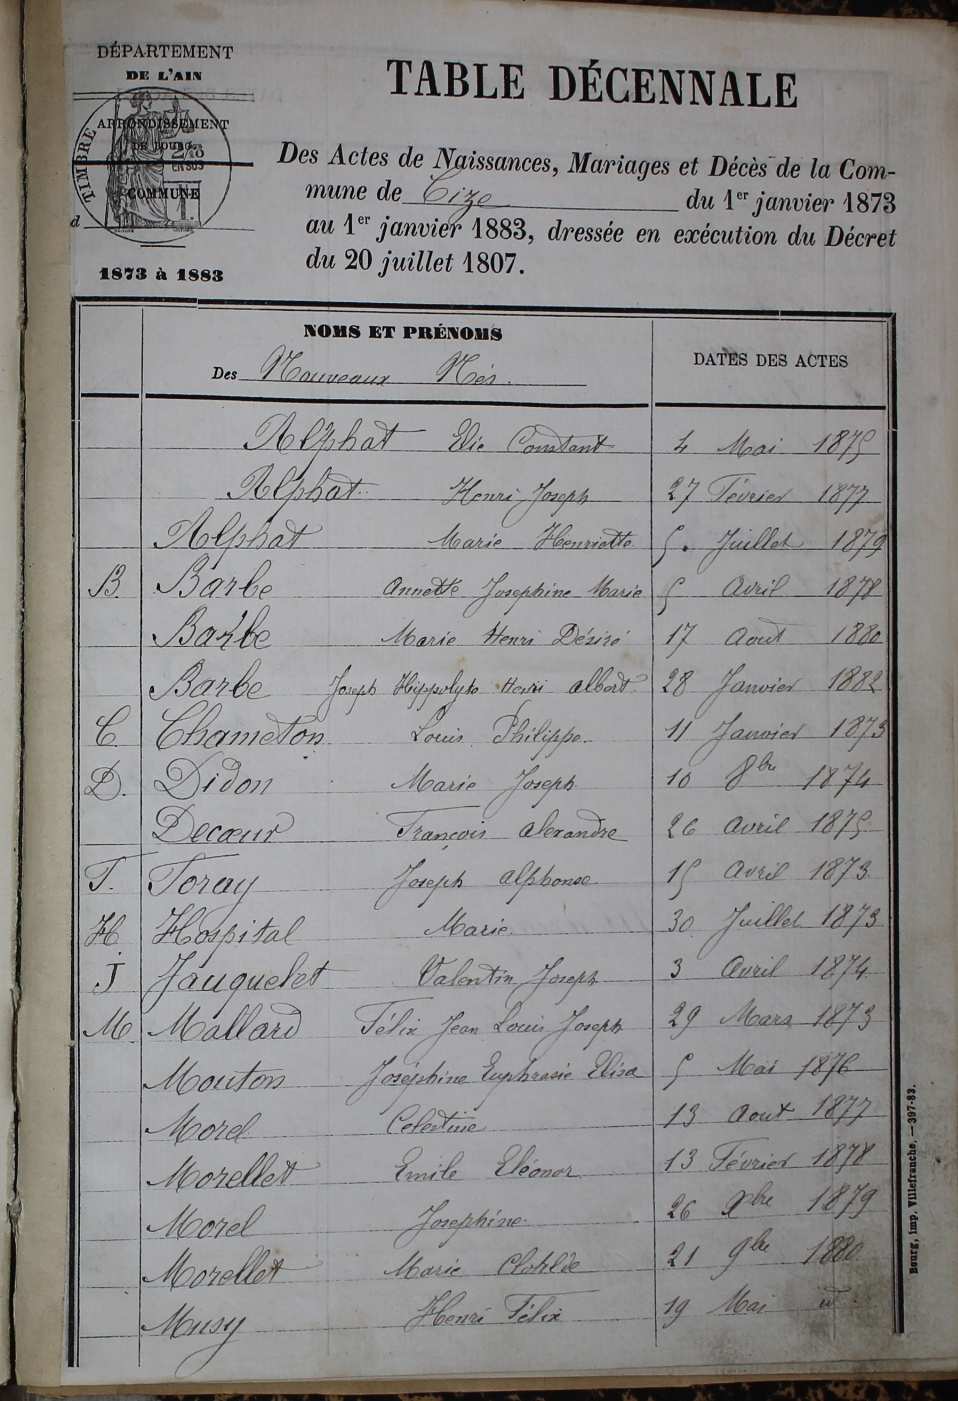 DÉPARTEMENT
DE L'AIN
ARRONDISSEMENT
DE BOURG
TIMBRE
EN SUS
COMMUNE
d
1873 à 1883
TABLE DÉCENNALE
Des Actes de Naissances, Mariages et Décès de la Com-
mune de Cize du 1er janvier 1873
au 1er janvier 1883, dressée en exécution du Décret
du 20 juillet 1807.
NOMS ET PRÉNOMS
Des Nouveaux Nés.
DATES DES ACTES
Alphat Elie Constant 4 Mai 1875
Alphat Henri Joseph 27 Février 1877
Alphat Marie Henriette 5. Juillet 1879
B. Barbe Annette Josephine Marie 5 Avril 1878
Barbe Marie Henri Désiré 17 Aout 1880
Barbe Joseph Hippolyte Henri Albert 28 Janvier 1882
C. Chameton Louis Philippe 11 Janvier 1873
D. Didon Marie Joseph 10 8bre 1874
Decœur François Alexandre 26 Avril 1875
F. Foray Joseph Alphonse 15 Avril 1873
H. Hospital Marie 30 Juillet 1873
J Jauquelet Valentin Joseph 3 Avril 1874
M. Mallard Félix Jean Louis Joseph 29 Mars 1873
Mouton Joséphine Euphrasie Elisa 5 Mai 1876
Morel Celestine 13 Aout 1877
Morellet Emile Eléonor 13 Février 1878
Morel Josephine 26 Xbre 1879
Morellet Marie Clotilde 21 9bre 1880
Musy Henri Félix 19 Mai id
Bourg, imp. Villefranche. — 397-83.